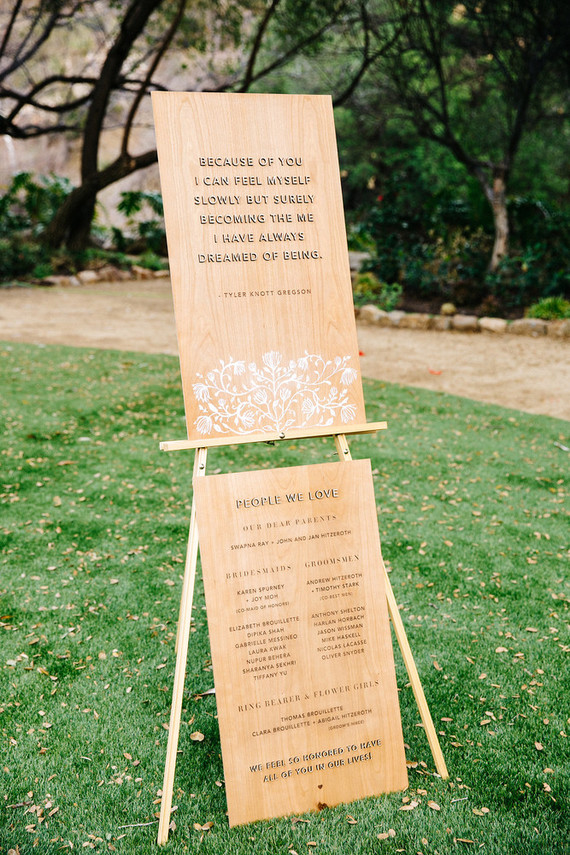 BECAUSE OF YOU
I CAN FEEL MYSELF
SLOWLY BUT SURELY
BECOMING THE ME
I HAVE ALWAYS
DREAMED OF BEING.
- TYLER KNOTT GREGSON
PEOPLE WE LOVE
OUR DEAR PARENTS
SWAPNA RAY + JOHN AND JAN HITZEROTH
BRIDESMAIDS
KAREN SPURNEY
+ JOY MOH
(CO-MAID OF HONORS)
ELIZABETH BROUILLETTE
DIPIKA SHAH
GABRIELLE MESSINEO
LAURA AWAK
NUPUR BEHERA
SHARANYA SEKHRI
TIFFANY YU
GROOMSMEN
ANDREW HITZEROTH
+ TIMOTHY STARK
(CO-BEST MEN)
ANTHONY SHELTON
HARLAN HORBACH
JASON WISSMAN
MIKE HASKELL
NICOLAS LACASSE
OLIVER SNYDER
RING BEARER & FLOWER GIRLS
THOMAS BROUILLETTE
CLARA BROUILLETTE + ABIGAIL HITZEROTH
WE FEEL SO HONORED TO HAVE
ALL OF YOU IN OUR LIVES!